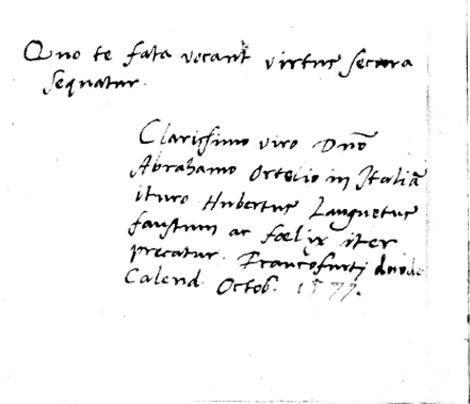 Quo te fata vocant virtus secura
sequatur.
Clarissimo viro Dnō
Abrahamo Ortelio in Italiā
ituro Hubertus Languetus
faustum ac fœlix iter
precatur. Francofurti duode
Calend. Octob. 1577.